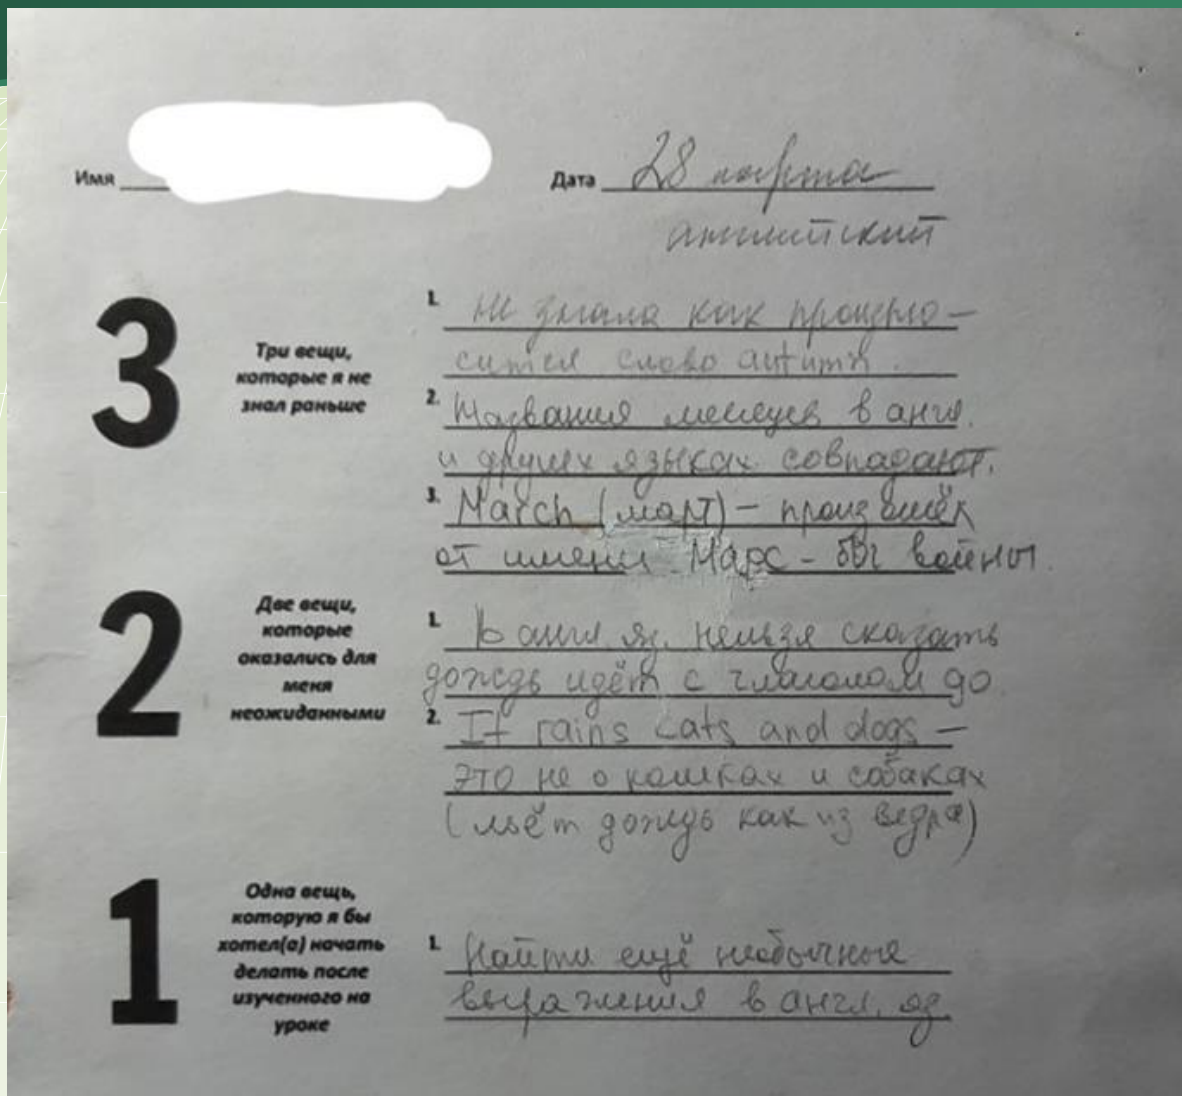 Имя
Дата 28 марта
английский
3
Три вещи,
которые я не
знал раньше
1. Не знала как произно-
сится слово autumn.
2. Названия месяцев в англ.
и других языках совпадают.
3. March (март) - произошёл
от имени Марс - бог войны.
2
Две вещи,
которые
оказались для
меня
неожиданными
1. В англ. яз. нельзя сказать
дождь идёт с глаголом go
2. It rains cats and dogs -
это не о кошках и собаках
(льёт дождь как из ведра)
1
Одна вещь,
которую я бы
хотел(а) начать
делать после
изученного на
уроке
1. Найти ещё необычные
выражения в англ. яз.